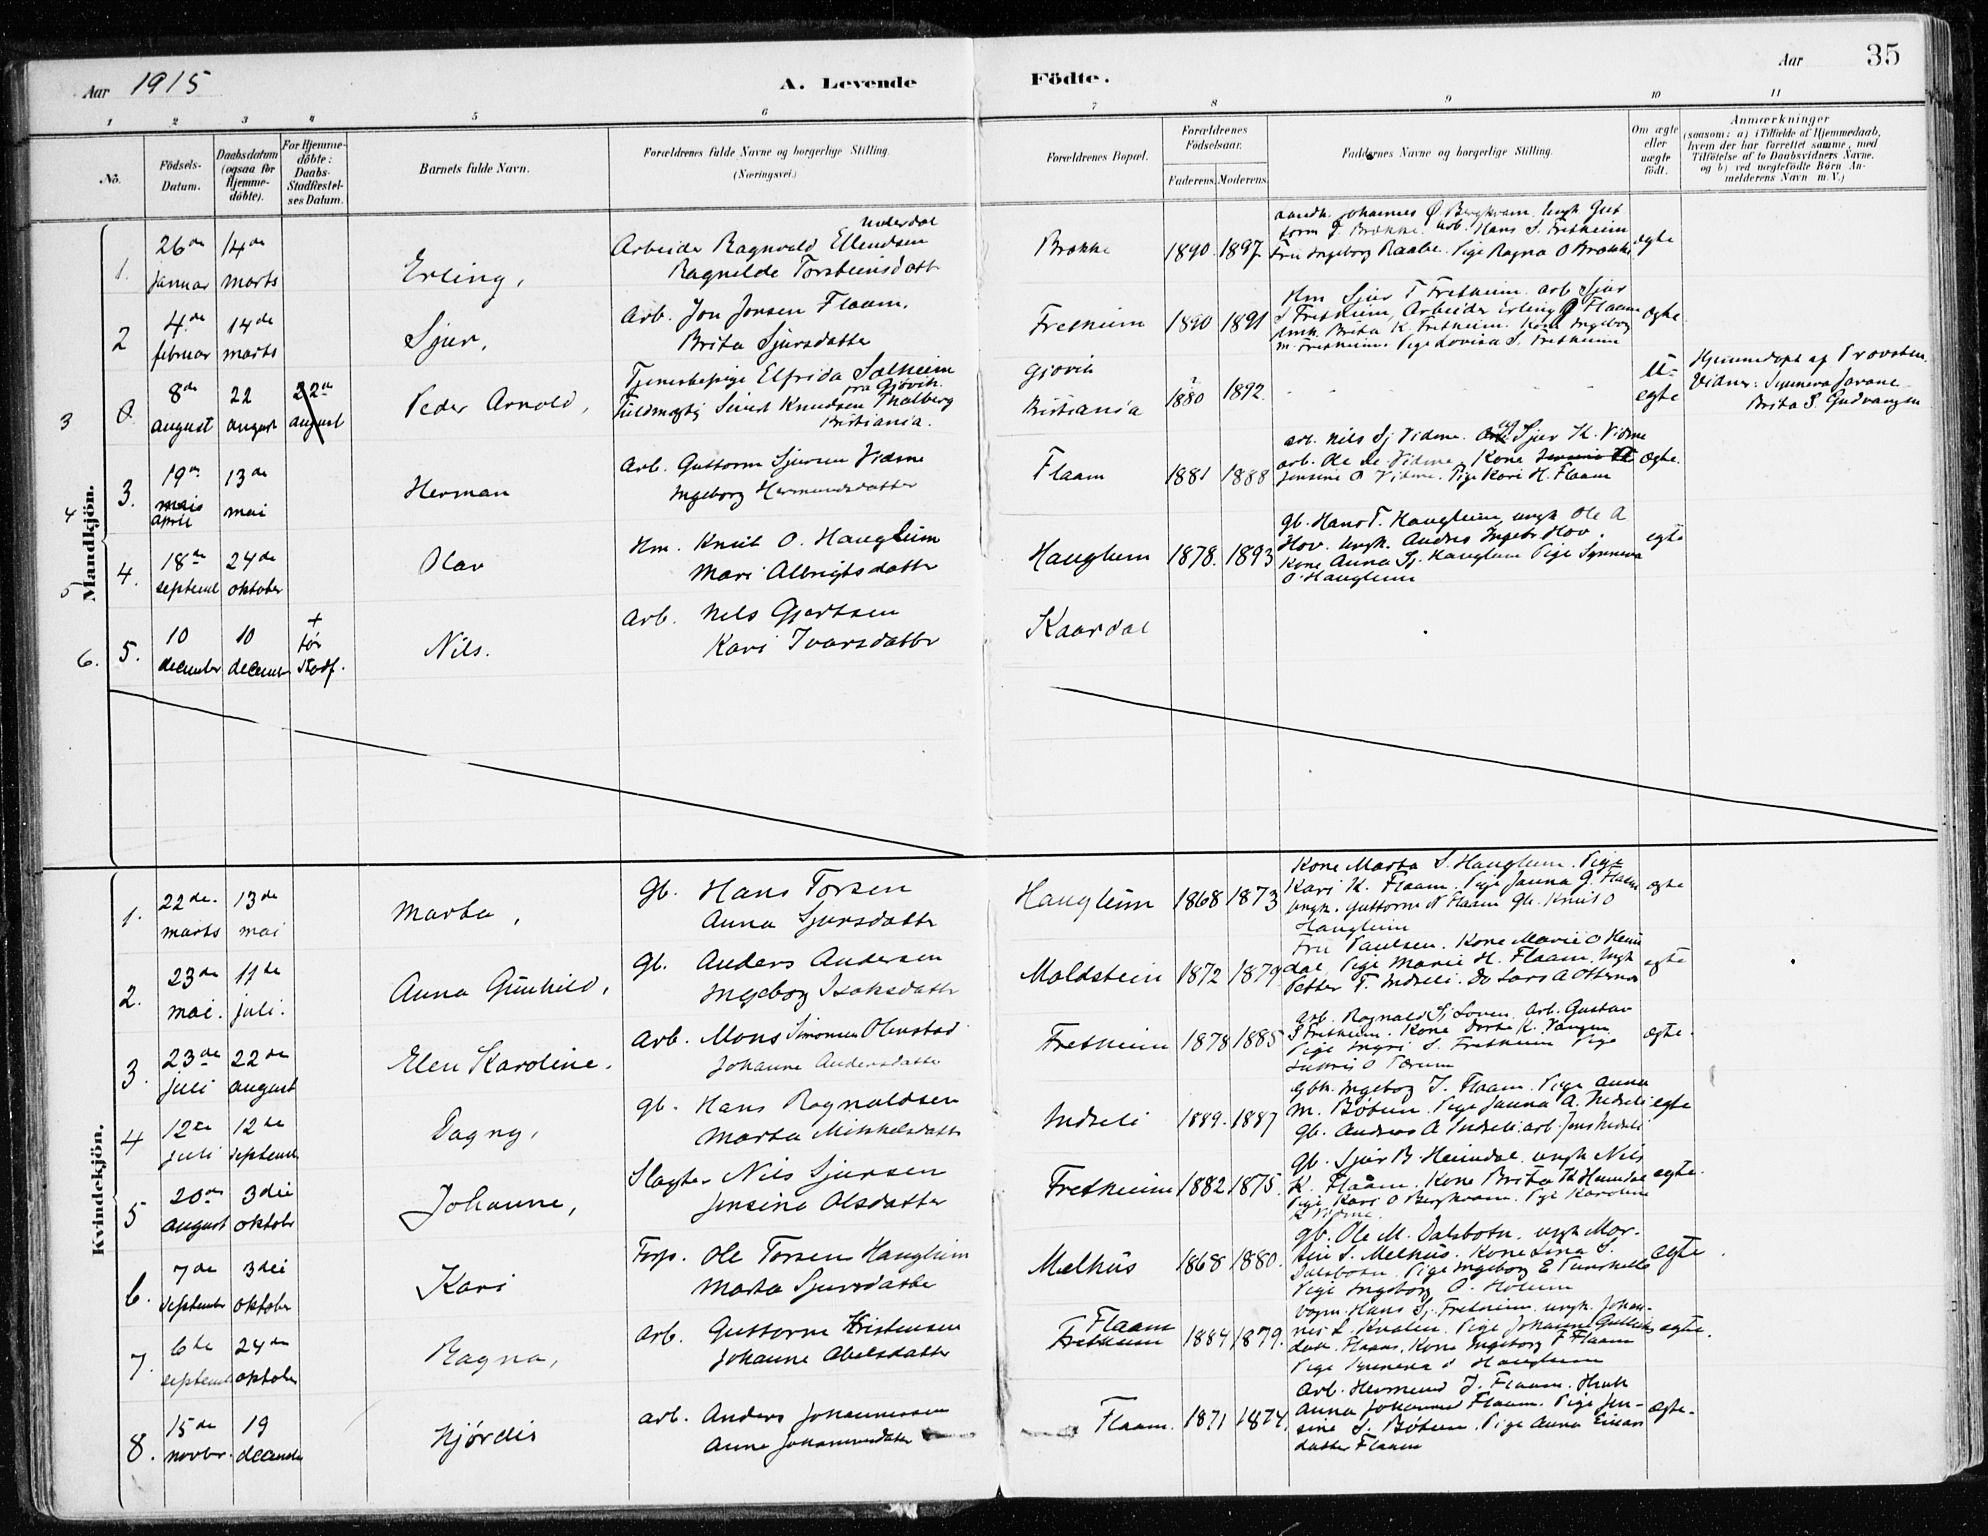 Aar 1915
A. Levende Födte.
Aar 35
1 2 3 4 5 6 7 8 9 10 11
No.
Födsels-Datum.
Daabsdatum (ogsaa for Hjemme-döbte).
For Hjemme-döbte: Daabs-Stadfæstel-ses Datum.
Barnets fulde Navn.
Forældrenes fulde Navne og borgerlige Stilling.
(Næringsvei.)
Forældrenes Bopæl.
Forældrenes Födselsaar.
Faderens. Moderens.
Faddernes Navne og borgerlige Stilling.
Om ægte eller uægte födt.
Anmærkninger
(saasom: a) i Tilfælde af Hjemmedaab, hvem der har forrettet samme, med Tilföielse af to Daabsvidners Navne, og b) ved uægtefödte Börn An-melderens Navn m. V.)
Mandkjön.
1. 26de januar 14de marts Erling,
Arbeider Ragnvald Ellendsen Underdal
Ragnilde Torsteinsdatter
Brække 1890. 1897
Johannes Ø. Bergkvam. Ungk Gut
torm J. Brække. Arb. Hans S. Fretheim
Fru Ingeborg Raabe. Pige Ragna O Brække
ægte
2 4de februar 14de marts Sjur,
Arb. Jon Jonsen Flaam.
Brita Sjursdatter
Fretheim 1890 1891
Hm Sjur T Fretheim. arb Sjur
S Fretheim, Arbeider Erling Flaam
Brita K. Fretheim. Kone Ingeborg
M. Fretheim. Pige Lovisa S. Fretheim
ægte.
3 8de august 22 august 22de august Peder Arnold,
Tjenestepige Elfrida Solheim
fra Gjövik.
Fuldmægtig Sivert Knudsen Thalberg
Kristiania.
Gjövik
Kristiania 1880 1892.
U-
ægte
Hjemmedøpt af Provsten.
Vidner: Synneva
Brita S. Gudvangen
4 3. 19de mais april 13de mai Herman
Arb. Guttorm Sjursen Vidme
Ingeborg Hermundsdatter
Flaam 1881 1888
arb. Nils Sj Vidme. Sjur K. Vidme
arb. Ole Vidme. Kone
Jensine O Vidme. Pige Kari H. Flaam
ægte.
5 4. 18de septembr 24de oktober Olav
Hm. Knut O. Hauglum
Mari Albrigtsdatter
Hauglum 1878. 1893
gb. Hans T. Hauglum ungk Ole A
Hov. Ungk. Anders Ingebr Hov.
Kone Anna Sj. Hauglum Pige Synneva
O. Hauglum
ægte
6. 5. 10 december 10 decembr + før Stadf. Nils.
arb. Nils Gjertsen
Kari Ivarsdatter
Kaardal
Kvindekjön.
1. 22de. marts 13de mai Marta,
Gb. Hans Torsen
Anna Sjursdatter
Hauglum 1868 1873
Kone Marta S. Hauglum. Pige
Kari K. Flaam. Pige Janna G. Flaam
ungk. Guttorm N Flaam Gb. Knut O
Hauglum
ægte
2. 23de mai. 11de juli. Anna Gunhild,
Gb. Anders Andersen
Ingeborg Isaksdatter
Moldstein 1872 1879
Fru Paulsen. Kone Marie O Heim
dal, Pige Marie H. Flaam. Ungk
Petter T. Indreli. Do Lars A Otternes
ægte
3. 23de juli 22de august Elen Karoline.
Arb. Mons Simonsen Olmstad
Johanne Andersdatter
Fretheim 1878 1885
Arb. Ragnald Sj Loven. Arb. Gustav
S Fretheim. Kone Dorte K. Vangen
Pige Ingri S. Fretheim Pige
ægte.
4 12te juli 12te septembr Dagny,
gb. Hans Ragnaldsen
Marta Mikkelsdatter
Indreli 1889. 1887
Gbk. Ingeborg J. Flaam. Pige Anna
M. Bötun. Pige Janna A. Indreli
Gb. Anders A Indreli. arb. Jens Indreli
ægte
5 20de august 3die oktobr Johanne,
Slagter Nils Sjursen
Jensine Olsdatter
Fretheim 1882 1875.
Gb. Sjur B. Heimdal. ungk Nils
K. Flaam. Kone Brita Heimdal
Pige Kari O Bergkvam. Pige Karoline
K Vidme.
ægte.
6. 7de September 3die oktober Kari
Forp. Ole Torsen Hauglum
Marta Sjursdatter
Melhus 1868 1880.
gb. Ole M. Dalsbotn. ungk Mar-
tin S. Melhus. Kone Lina S.
Dalsbotn. Pige Ingeborg E
Pige Ingeborg O.
ægte.
7. 6te septembr 24de oktober Ragna,
arb. Guttorm Kristensen
Johanne Abelsdatter
Flaam
Fretheim 1884 1879.
Hans Sj. Fretheim. ungk. Johan-
nes L Kvalen. Pige Johanna Guttorms
datter Flaam. Kone Ingeborg F Flaam
Pige Synneva O Hauglum
ægte.
8. 15de novbr. 19 december Hjørdis
arb. Anders Johannessen
Anna Johannesdatter
Flaam. 1871 1874
Arb. Hermund J. Flaam.
Anna Johannes Flaam. Pige Jen-
sine S. Bötun. Pige Anna Einars
datter Flaam
ægte.